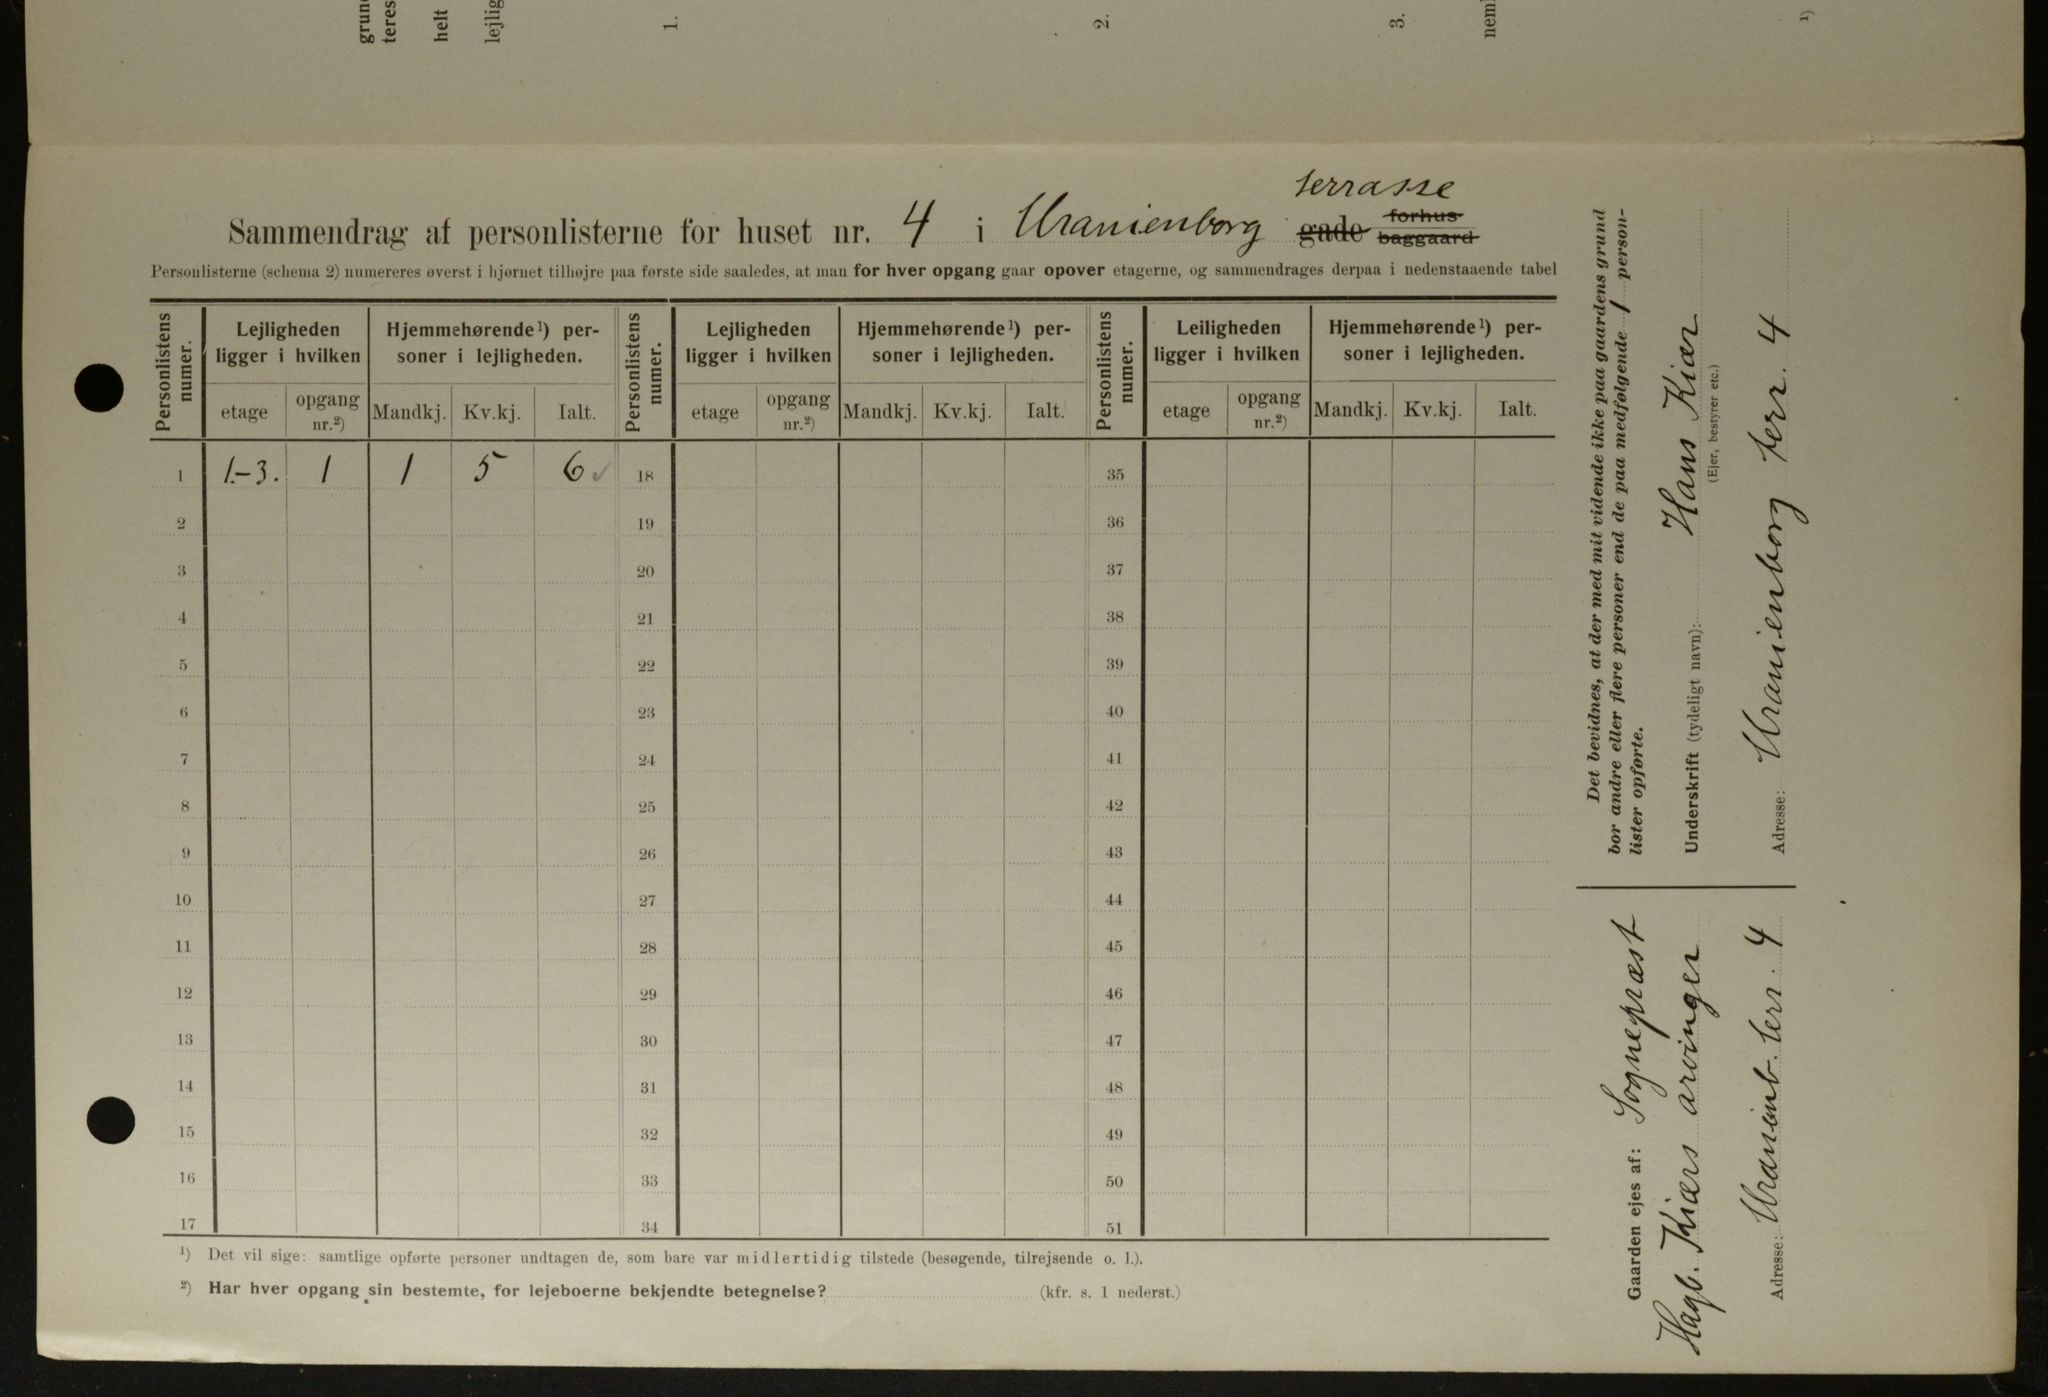 grun
teres
helt
lejlig
1.
2.
3.
nem
1)
terrasse
Sammendrag af personlisterne for huset nr. 4 i Uranienborg gade forhus baggaard
Personlisterne (schema 2) numereres øverst i hjørnet tilhøjre paa første side saaledes, at man for hver opgang gaar opover etagerne, og sammendrages derpaa i nedenstaaende tabel
Personlistens numer. | Lejligheden ligger i hvilken | Hjemmehørende ¹) personer i lejligheden. | Personlistens numer. | Lejligheden ligger i hvilken | Hjemmehørende ¹) personer i lejligheden. | Personlistens numer. | Leiligheden ligger i hvilken | Hjemmehørende ¹) personer i lejligheden.
etage | opgang nr.²) | Mandkj. | Kv.kj. | Ialt. | etage | opgang nr.²) | Mandkj. | Kv.kj. | Ialt. | etage | opgang nr.²) | Mandkj. | Kv.kj. | Ialt.
1 1.-3. 1 1 5 6 ✓ 18 35
2 19 36
3 20 37
4 21 38
5 22 39
6 23 40
7 24 41
8 25 42
9 26 43
10 27 44
11 28 45
12 29 46
13 30 47
14 31 48
15 32 49
16 33 50
17 34 51
¹) Det vil sige: samtlige opførte personer undtagen de, som bare var midlertidig tilstede (besøgende, tilrejsende o. l.).
²) Har hver opgang sin bestemte, for lejeboerne bekjendte betegnelse? (kfr. s. 1 nederst.)
Det bevidnes, at der med mit vidende ikke paa gaardens grund
bor andre eller flere personer end de paa medfølgende 1 person-
lister opførte.
Underskrift (tydeligt navn): Hans Kiær
(Ejer, bestyrer etc.)
Adresse: Uranienborg terr. 4
Gaarden ejes af: Sognepræst
Hagb. Kiærs arvinger
Adresse: Uranienb. terr. 4